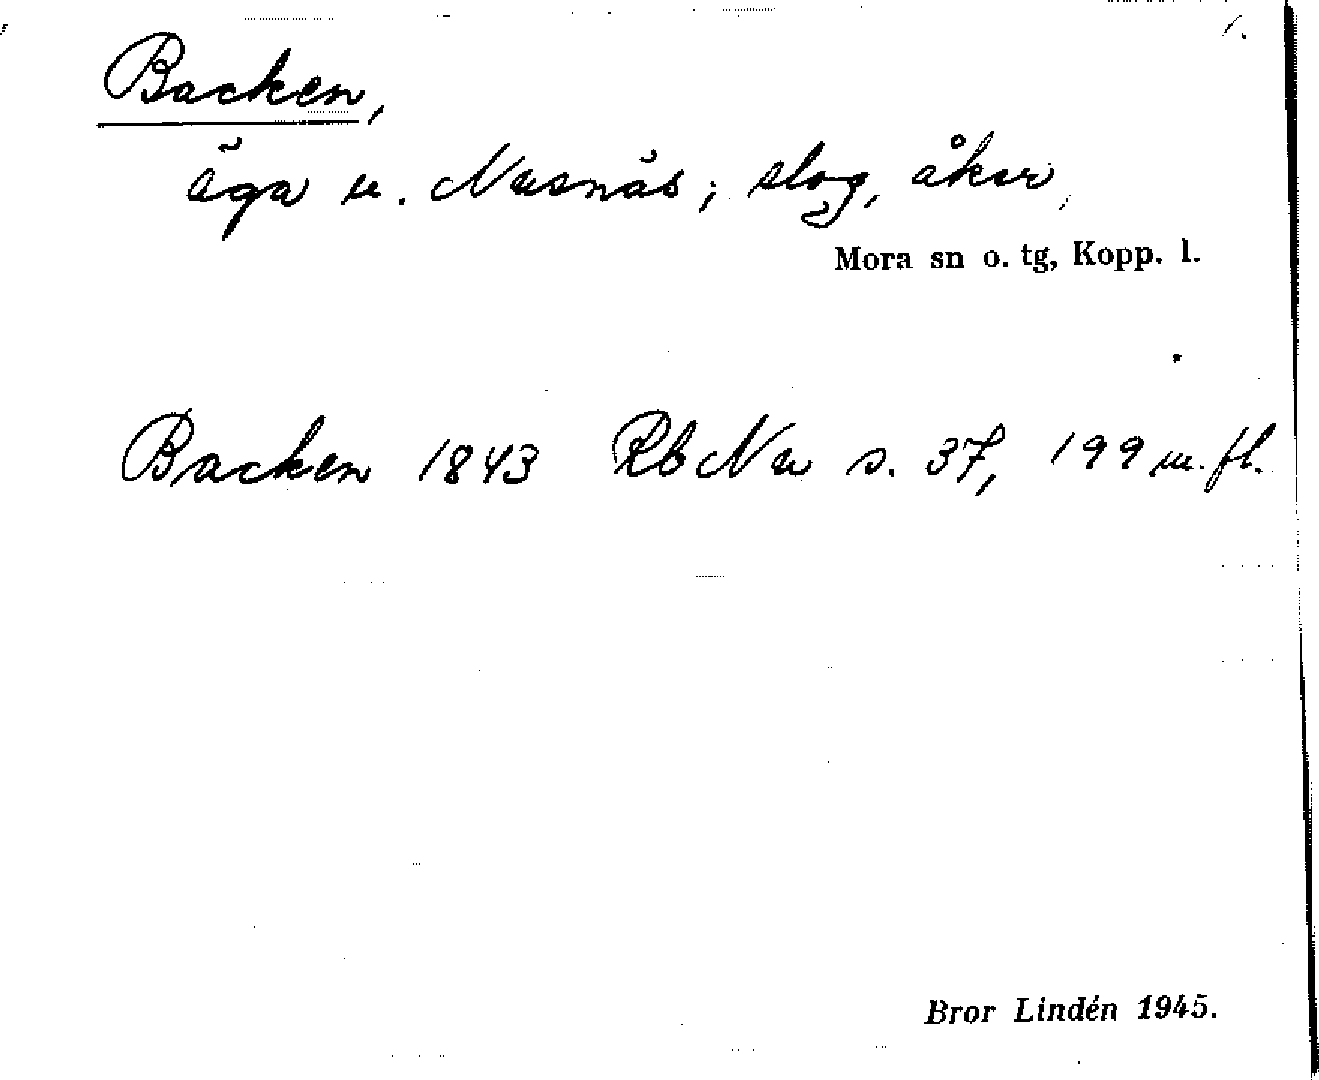 Backen,
äga u. Nusnäs; slog, åker,
Mora sn o. tg, Kopp. l.
Backen 1843 Rb Nu s. 37, 199 m. fl.
Bror Lindén 1945.